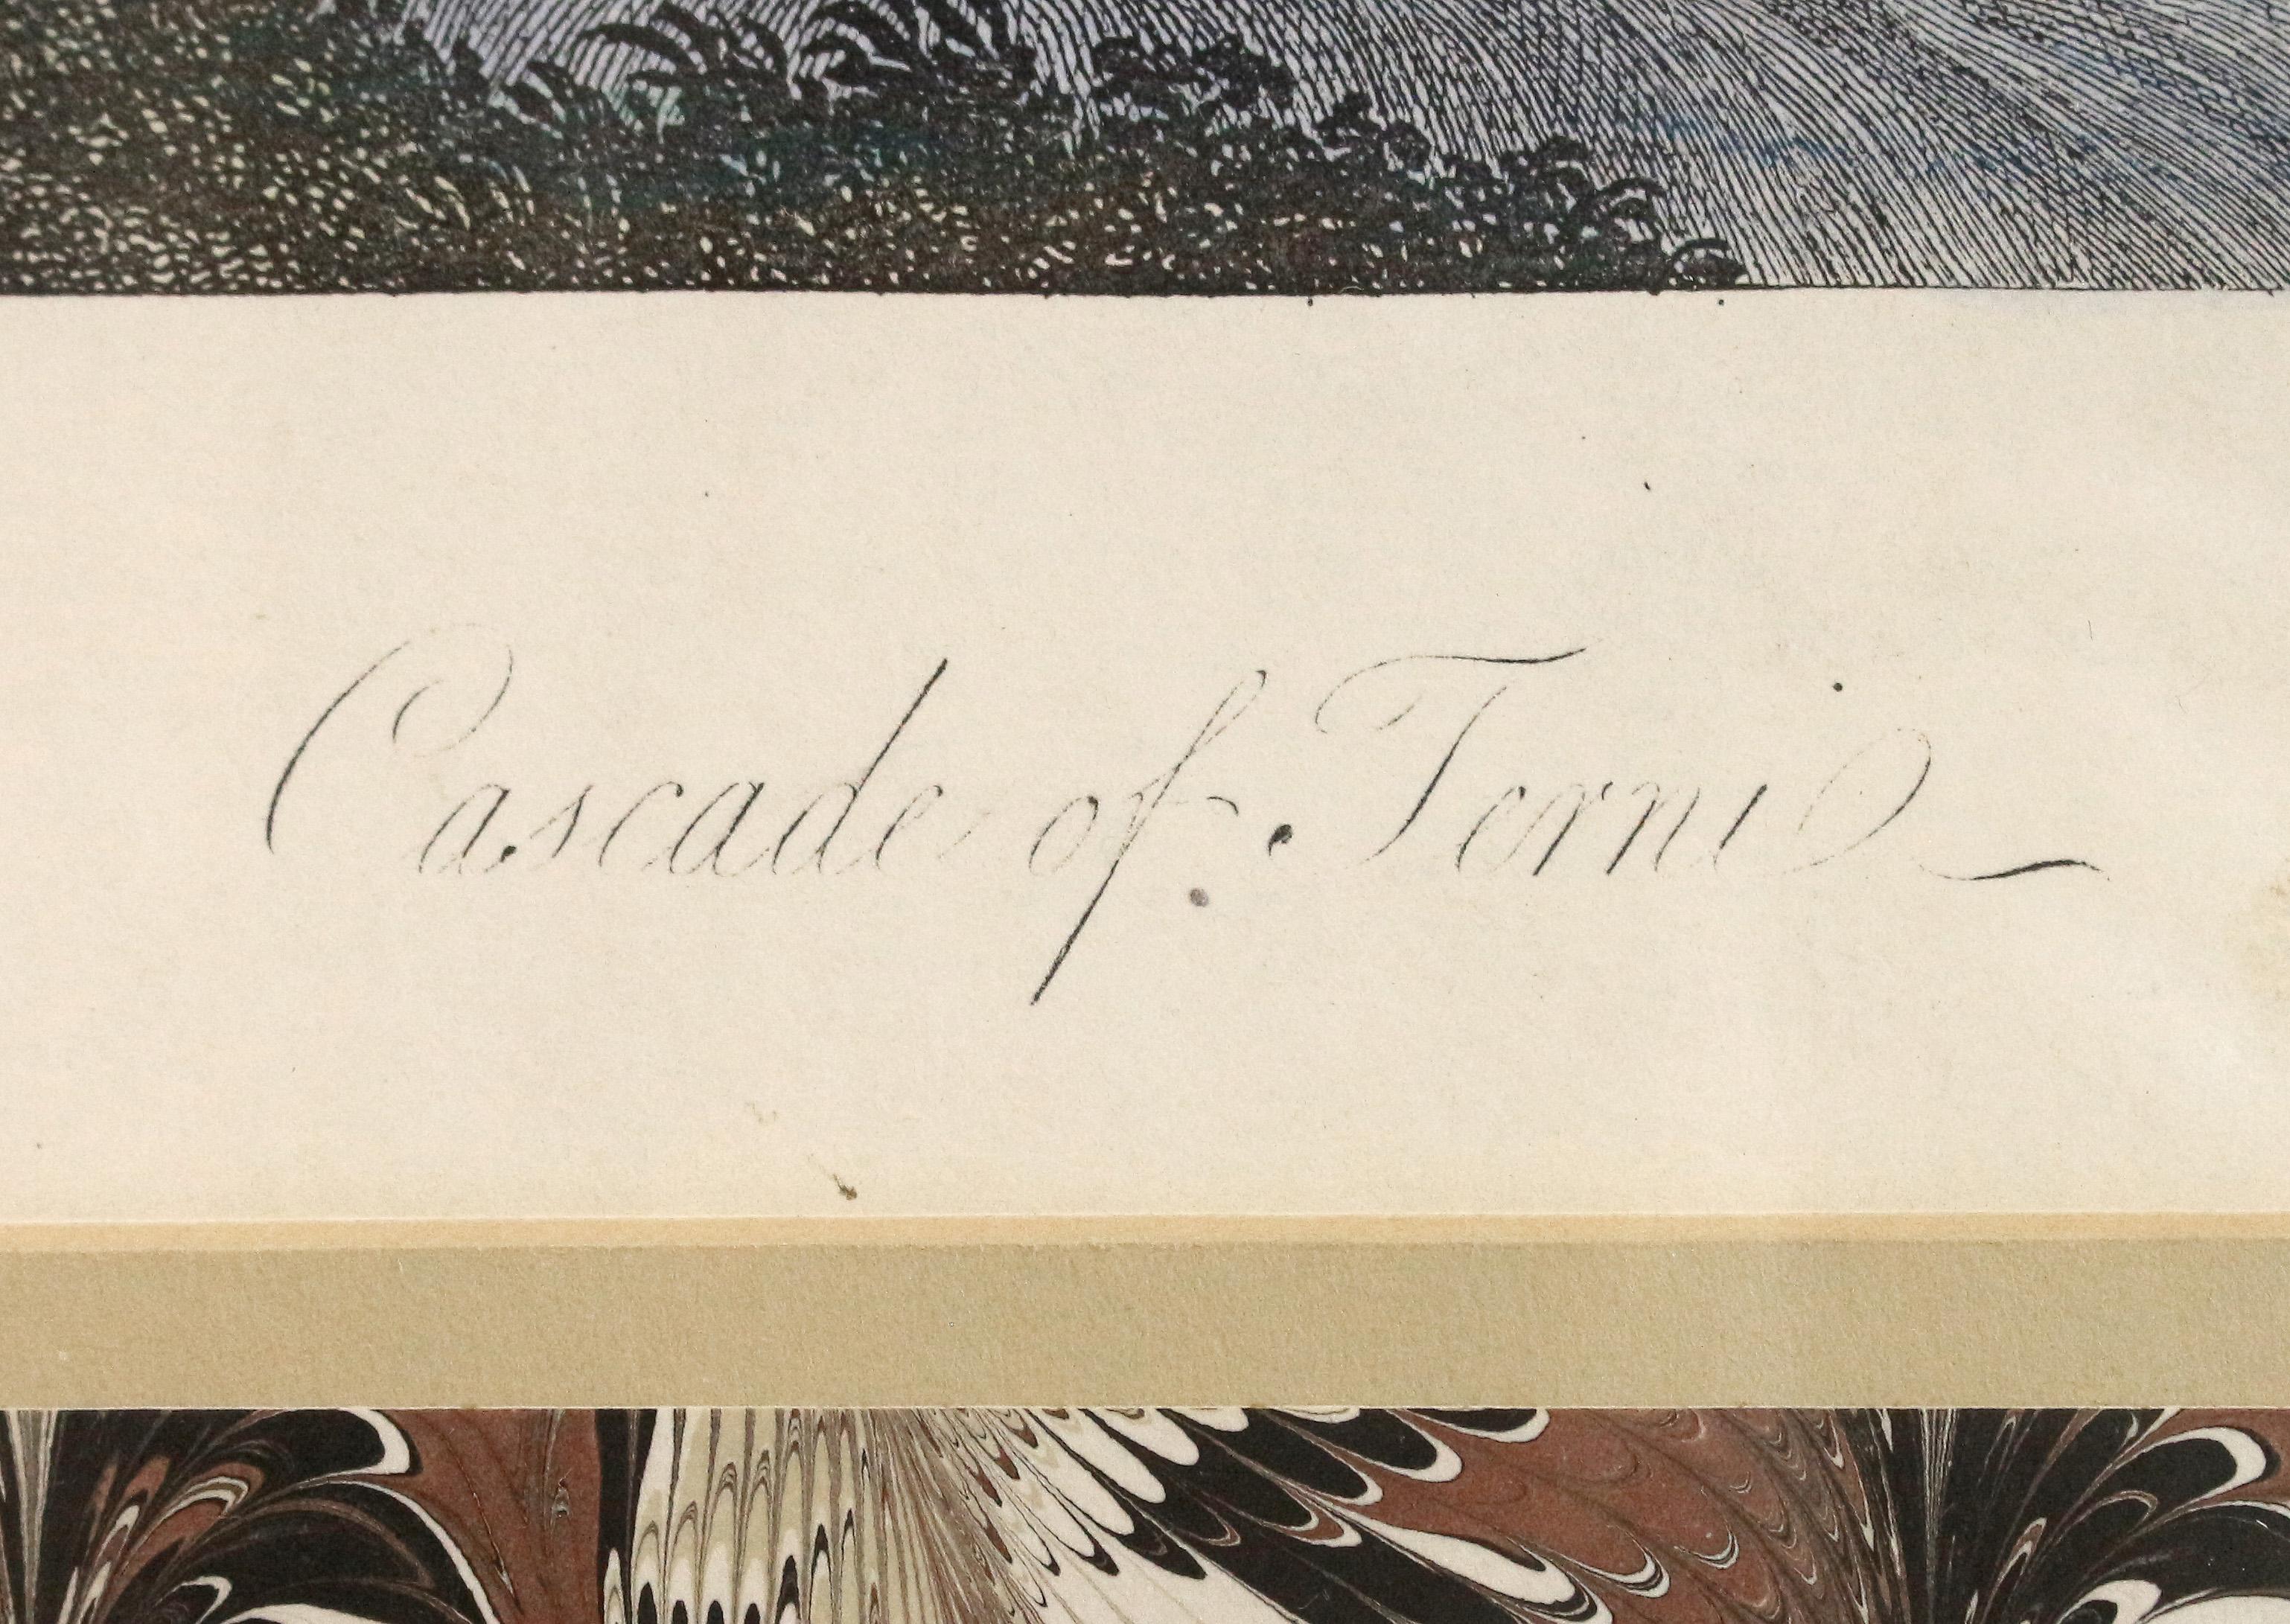 Cascade of Terni